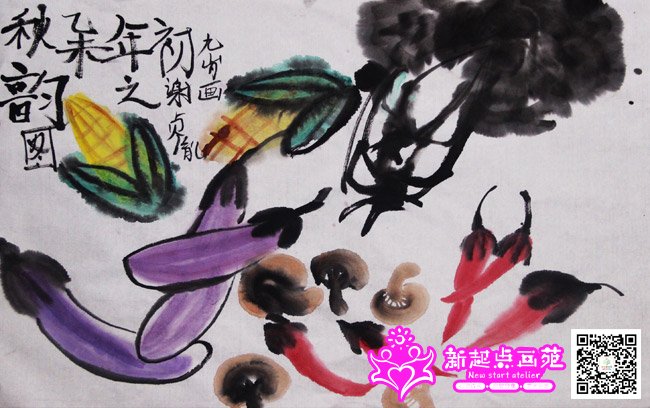 秋韵图
乙未年之初
谢贞能
九岁画
新起点画苑
New start atelier